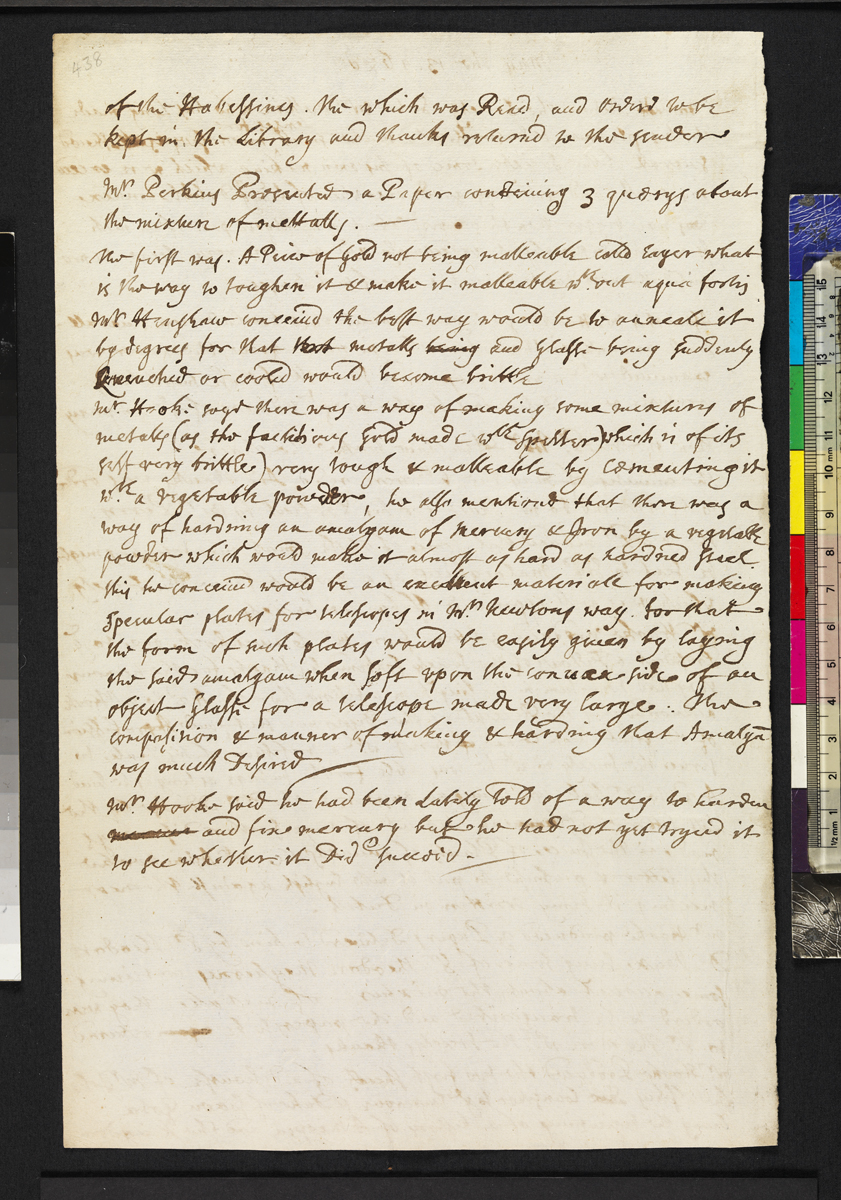 438
of the Habessines. the which was Read, and ordred to be
kept in the Library and thanks returnd to the sender
Mr. Perkins Presented a Paper conteining 3 querys about
the mixture of mettalls. —
the first was. A Peice of Gold not being malleable calld Eager what
is the way to toughen it & make it malleable wth.out aqua fortis
Mr Henshaw conceiud the best way would be to anneale it
by degrees for that metalls being and Glasse being suddenly
Quenched or coold would become brittle
Mr. Hooke sayd there was a way of making some mixtures of
metalls (as the factitious Gold made wth Spelter) which is of its
self very brittle) very tough & malleable by Cementing it
wth a vegetable powder, he also mentiond that there was a
way of hardning an amalgam of mercury & Iron by a vegetable
powder which would make it almost as hard as hardned steel.
this he conceiud would be an excellent materiall for making
specular plates for telescopes in Mr. Newtons way. for that
the form of such plates would be easily given by laying
the said amalgam when soft upon the convex side of an
object Glasse for a telescope made very large. The
composition & manner of making & harding that Amalgā
was much Desired
Mr. Hooke said he had been Lately told of a way to harden
and fix mercury but he had not yet tryed it
to see whether it Did succeid. —
15
14
13
12
11
10
9
8
7
6
5
4
3
2
1
1/2mm
mm